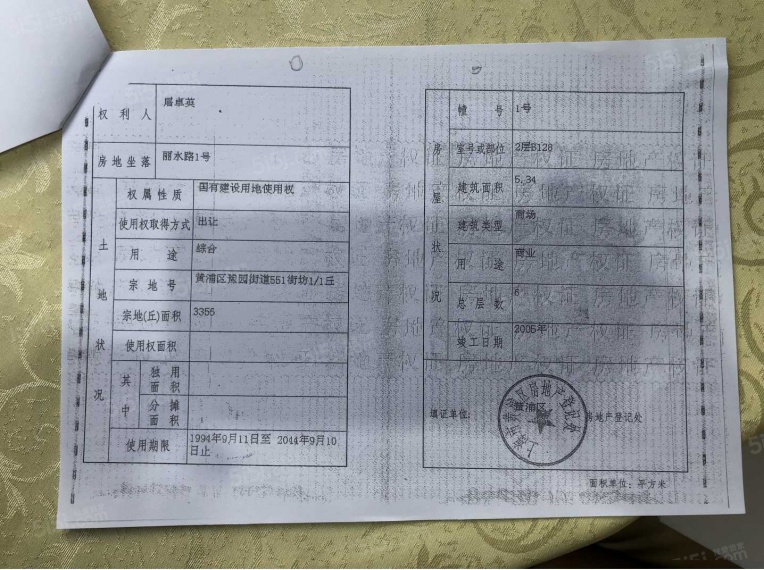 权利人 屠卓英
房地坐落 丽水路1号
土地状况
权属性质 国有建设用地使用权
使用权取得方式 出让
用途 综合
宗地号 黄浦区豫园街道551街坊1/1丘
宗地(丘)面积 3355
使用权面积
其中
独用面积
分摊面积
使用期限 1994年9月11日至 2044年9月10
日止
房屋状况
幢号 1号
室号或部位 2层B128
建筑面积 5.34
建筑类型 商场
用途 商业
总层数 6
竣工日期 2005年
填证单位: 黄浦区 房地产登记处
面积单位: 平方米
房地产权证